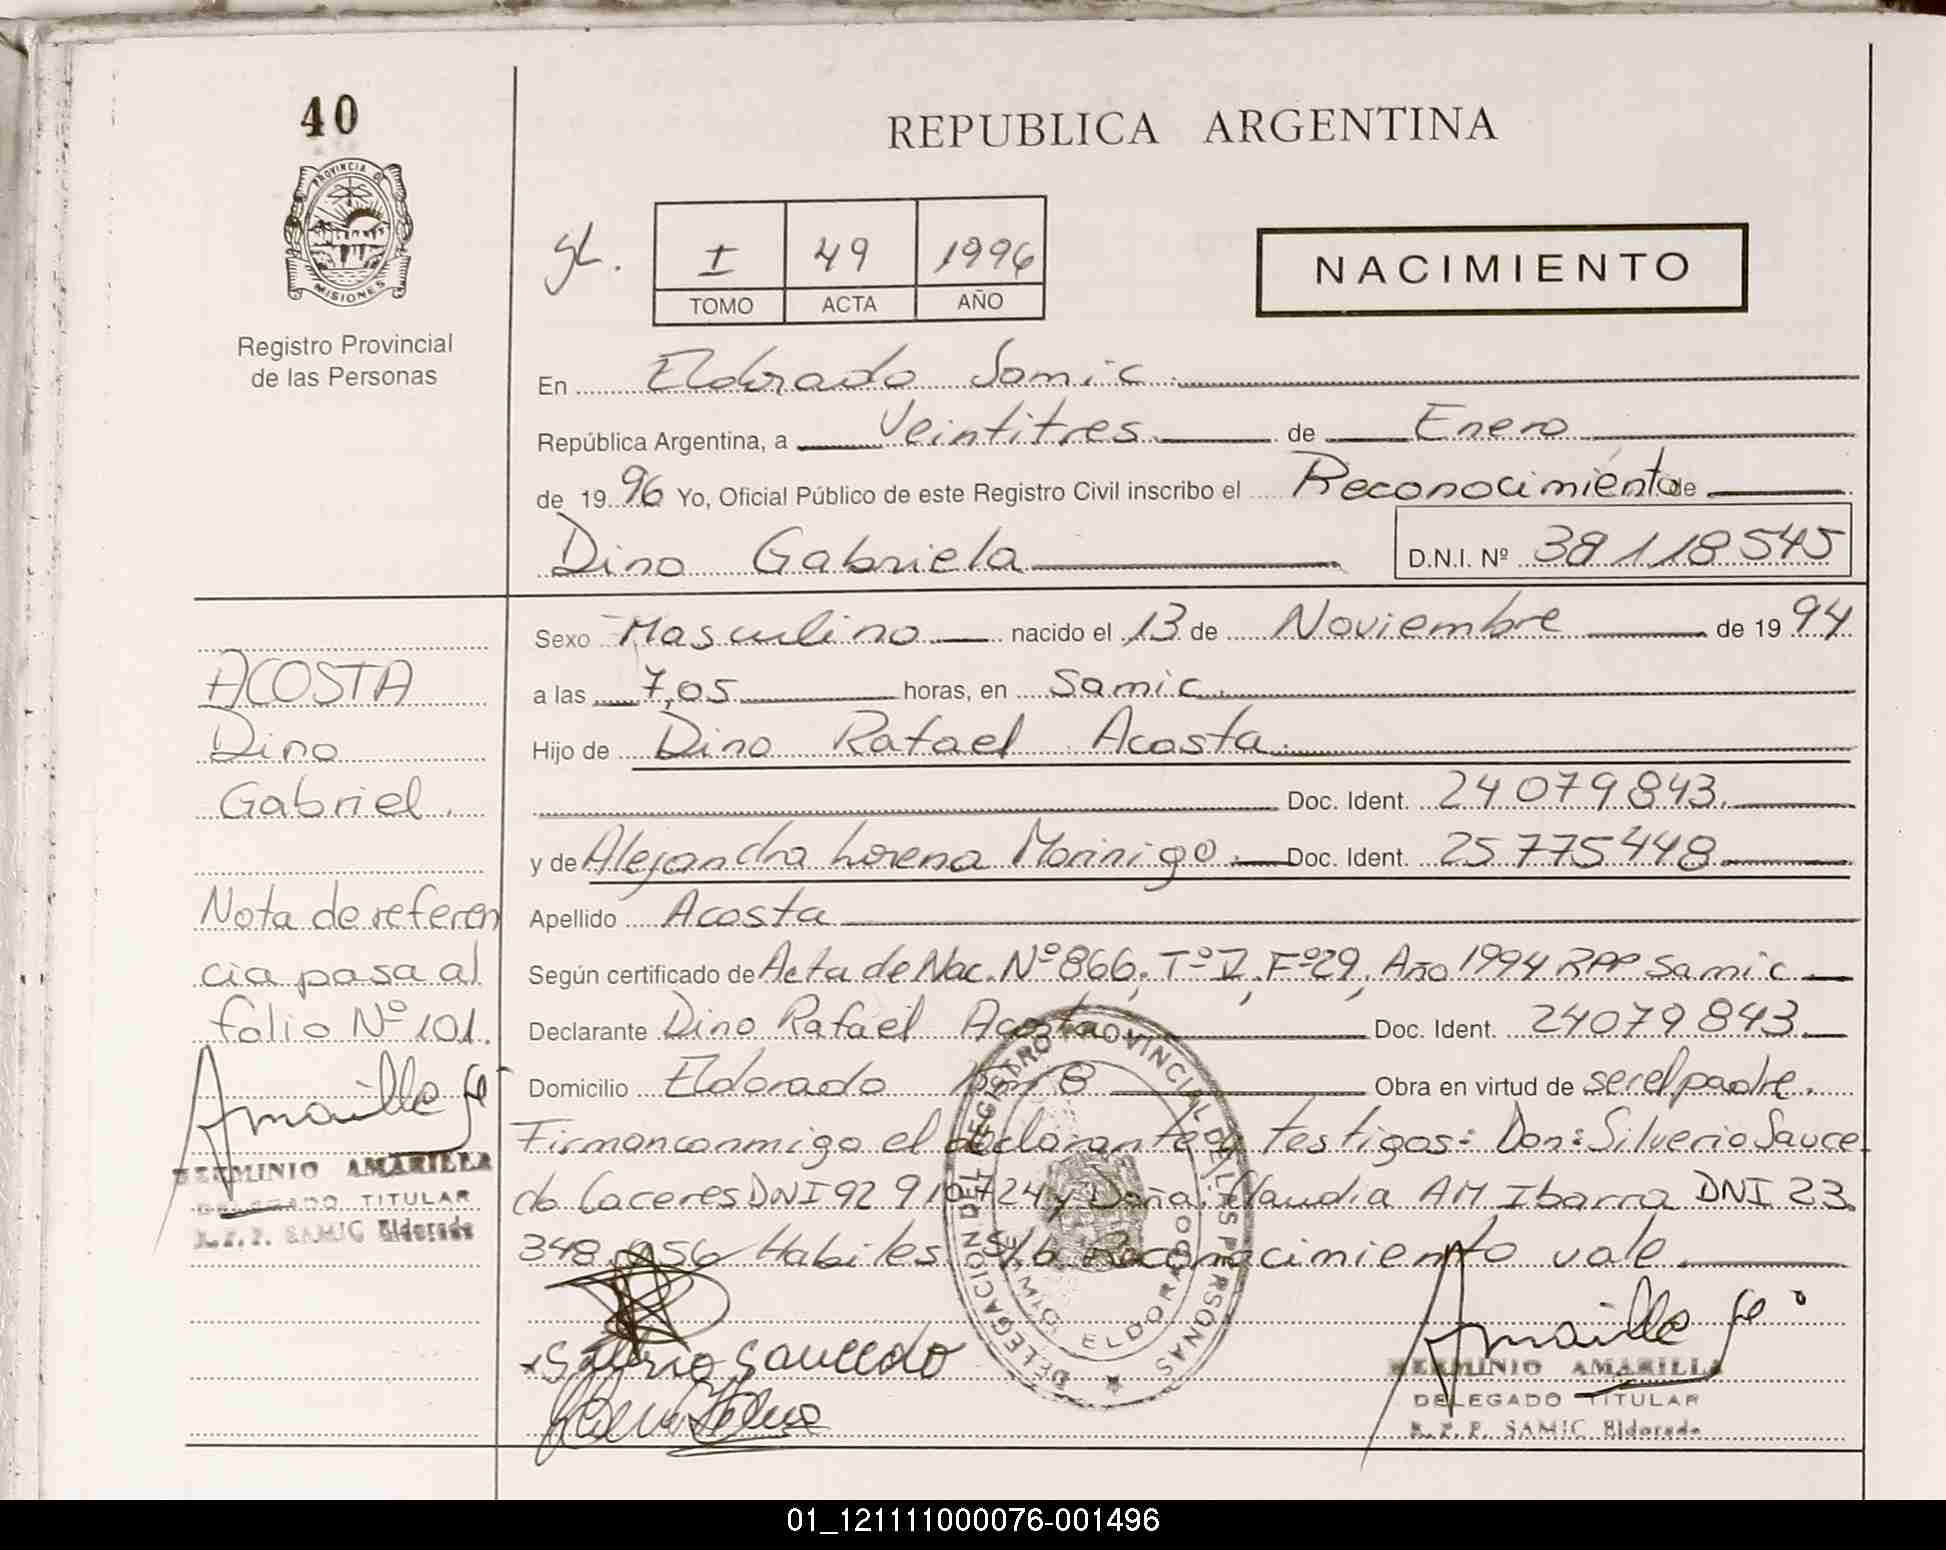 40
REPUBLICA ARGENTINA
PROVINCIA D
MISIONES
Registro Provincial
de las Personas
I 49 1996
TOMO ACTA AÑO
NACIMIENTO
En Eldorado Samic
República Argentina, a Veintitres de Enero
de 1996 Yo, Oficial Público de este Registro Civil inscribo el Reconocimiento de
Dino Gabriela
D.N.I. Nº 38118545
Sexo Masculino nacido el 13 de Noviembre de 1994
a las 7,05 horas, en Samic
Hijo de Dino Rafael Acosta
Doc. Ident. 24079843
y de Alejandra Lorena Morinigo Doc. Ident. 25775448
Apellido Acosta
Según certificado de Acta de Nac. Nº 866, Tº V, Fº 29, Año 1994 RPP Samic
Declarante Dino Rafael Acosta Doc. Ident. 24079843
Domicilio Eldorado Km 8 Obra en virtud de ser el padre.
Firman conmigo el declarante y testigos: Don: Silverio Sauce
do Caceres DNI 92 910 724 y Doña: Claudia AM Ibarra DNI 23.
348.956 Habiles S/b Reconocimiento vale
ACOSTA
Dino
Gabriel.
Nota de referen
cia pasa al
folio Nº 101.
HERMINIO AMARILLA
DELEGADO TITULAR
R.P.P. SAMIC Eldorado
Silverio Saucedo
DELEGACION DEL REGISTRO PROVINCIAL DE LAS PERSONAS
SAMIC ELDORADO
HERMINIO AMARILLA
DELEGADO TITULAR
R.P.P. SAMIC Eldorado
01_121111000076-001496